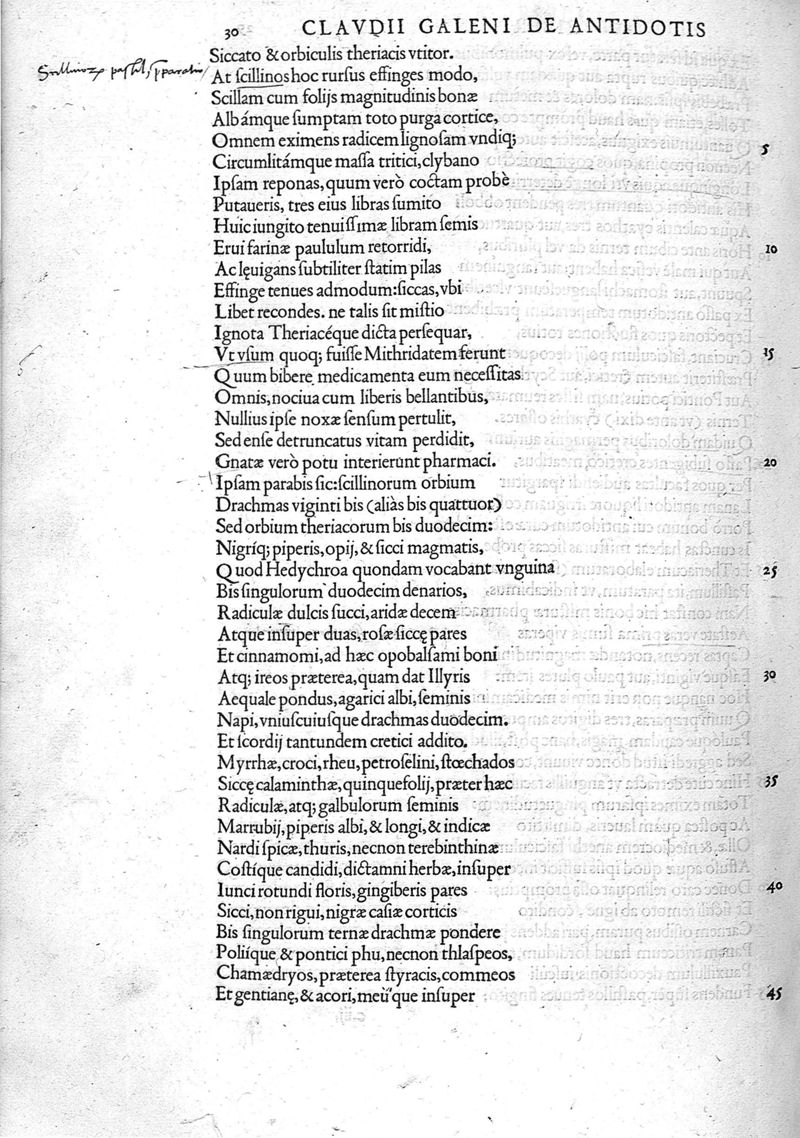 30 CLAVDII GALENI DE ANTIDOTIS
Siccato & orbiculis theriacis vtitor.
At ſcillinos hoc rurſus effinges modo,
Scillam cum folijs magnitudinis bonæ
Albámque ſumptam toto purga cortice,
Omnem eximens radicem lignoſam vndiq; 5
Circumlitámque maſſa tritici, clybano
Ipſam reponas, quum verò coctam probè
Putaueris, tres eius libras ſumito
Huic iungito tenuiſſimæ libram ſemis
Erui farinæ paululum retorridi, 10
Ac lęuigans ſubtiliter ſtatim pilas
Effinge tenues admodum: ſiccas, vbi
Libet recondes. ne talis ſit miſtio
Ignota Theriacéque dicta perſequar,
Vt vſum quoq; fuiſſe Mithridatem ferunt 15
Quum bibere medicamenta eum neceſſitas
Omnis, nociua cum liberis bellantibus,
Nullius ipſe noxæ ſenſum pertulit,
Sed enſe detruncatus vitam perdidit,
Gnatæ verò potu interierunt pharmaci. 20
Ipſam parabis ſic: ſcillinorum orbium
Drachmas viginti bis (aliàs bis quattuor)
Sed orbium theriacorum bis duodecim:
Nigríq; piperis, opij, & ſicci magmatis,
Quod Hedychroa quondam vocabant vnguina 25
Bis ſingulorum duodecim denarios,
Radiculæ dulcis ſucci, aridæ decem
Atque inſuper duas, roſæ ſiccę pares
Et cinnamomi, ad hæc opobalſami boni
Atq; ireos præterea, quam dat Illyris 30
Aequale pondus, agarici albi, ſeminis
Napi, vniuſcuiuſque drachmas duodecim.
Et ſcordij tantundem cretici addito.
Myrrhæ, croci, rheu, petroſelini, ſtœchados
Siccę calaminthæ, quinquefolij, præter hæc 35
Radiculæ, atq; galbulorum ſeminis
Marrubij, piperis albi, & longi, & indicæ
Nardi ſpicæ, thuris, necnon terebinthinæ
Coſtíque candidi, dictamni herbæ, inſuper
Iunci rotundi floris, gingiberis pares 40
Sicci, non rigui, nigræ caſiæ corticis
Bis ſingulorum ternæ drachmæ pondere
Poliíque & pontici phu, necnon thlaſpeos,
Chamædryos, præterea ſtyracis, commeos
Et gentianę, & acori, meúque inſuper 45